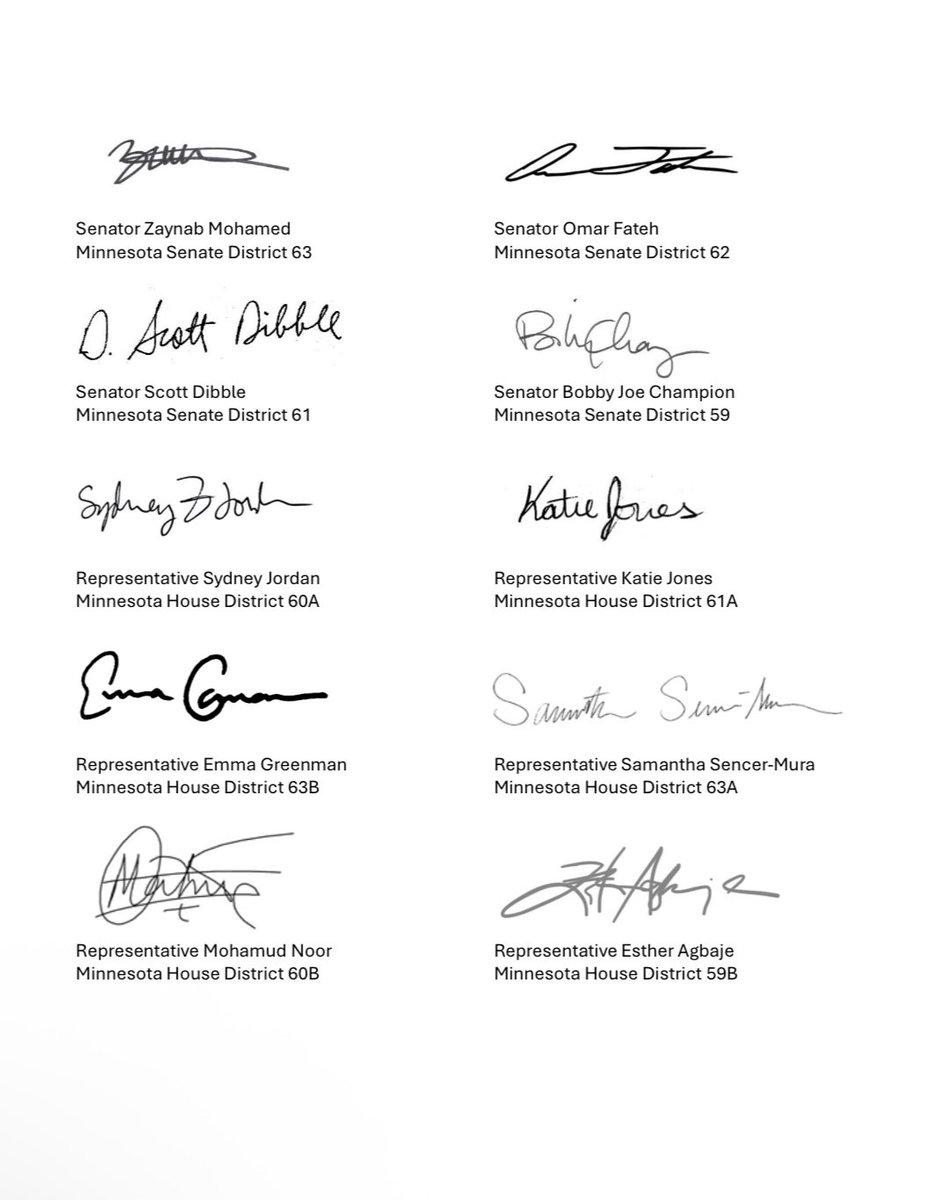 Senator Zaynab Mohamed
Minnesota Senate District 63
Omar Fateh
Senator Omar Fateh
Minnesota Senate District 62
D. Scott Dibble
Senator Scott Dibble
Minnesota Senate District 61
Senator Bobby Joe Champion
Minnesota Senate District 59
Sydney Jordan
Representative Sydney Jordan
Minnesota House District 60A
Katie Jones
Representative Katie Jones
Minnesota House District 61A
Emma
Representative Emma Greenman
Minnesota House District 63B
Representative Samantha Sencer-Mura
Minnesota House District 63A
Representative Mohamud Noor
Minnesota House District 60B
Representative Esther Agbaje
Minnesota House District 59B